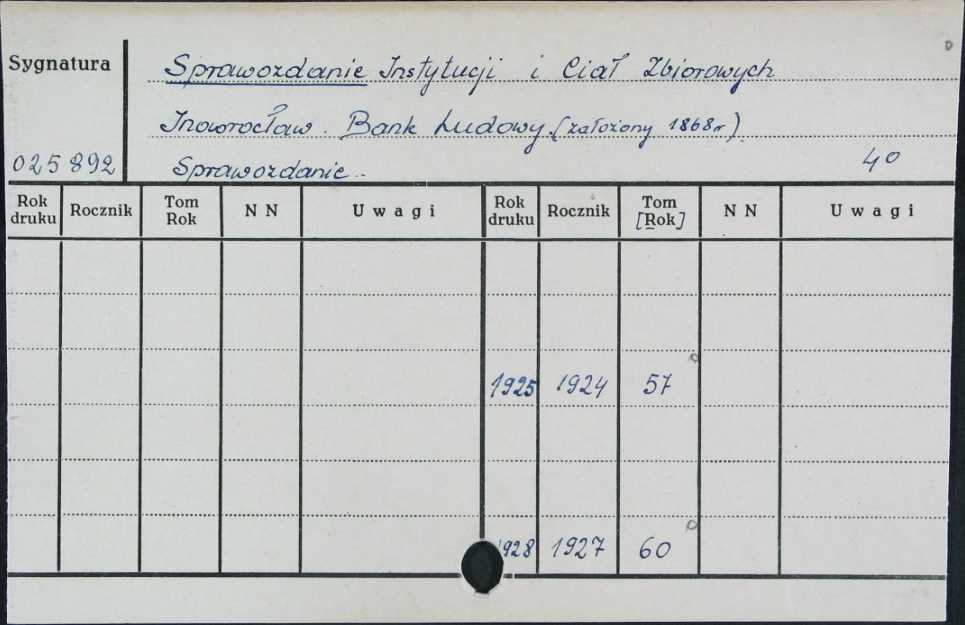 Sygnatura
Sprawozdanie Instytucji i Ciał Zbiorowych
Inowrocław. Bank Ludowy. (założony 1868r)
025892 Sprawozdanie.. 40
Rok druku Rocznik Tom Rok N N Uwagi Rok druku Rocznik Tom [Rok] N N Uwagi
1925 1924 57
1928 1927 60